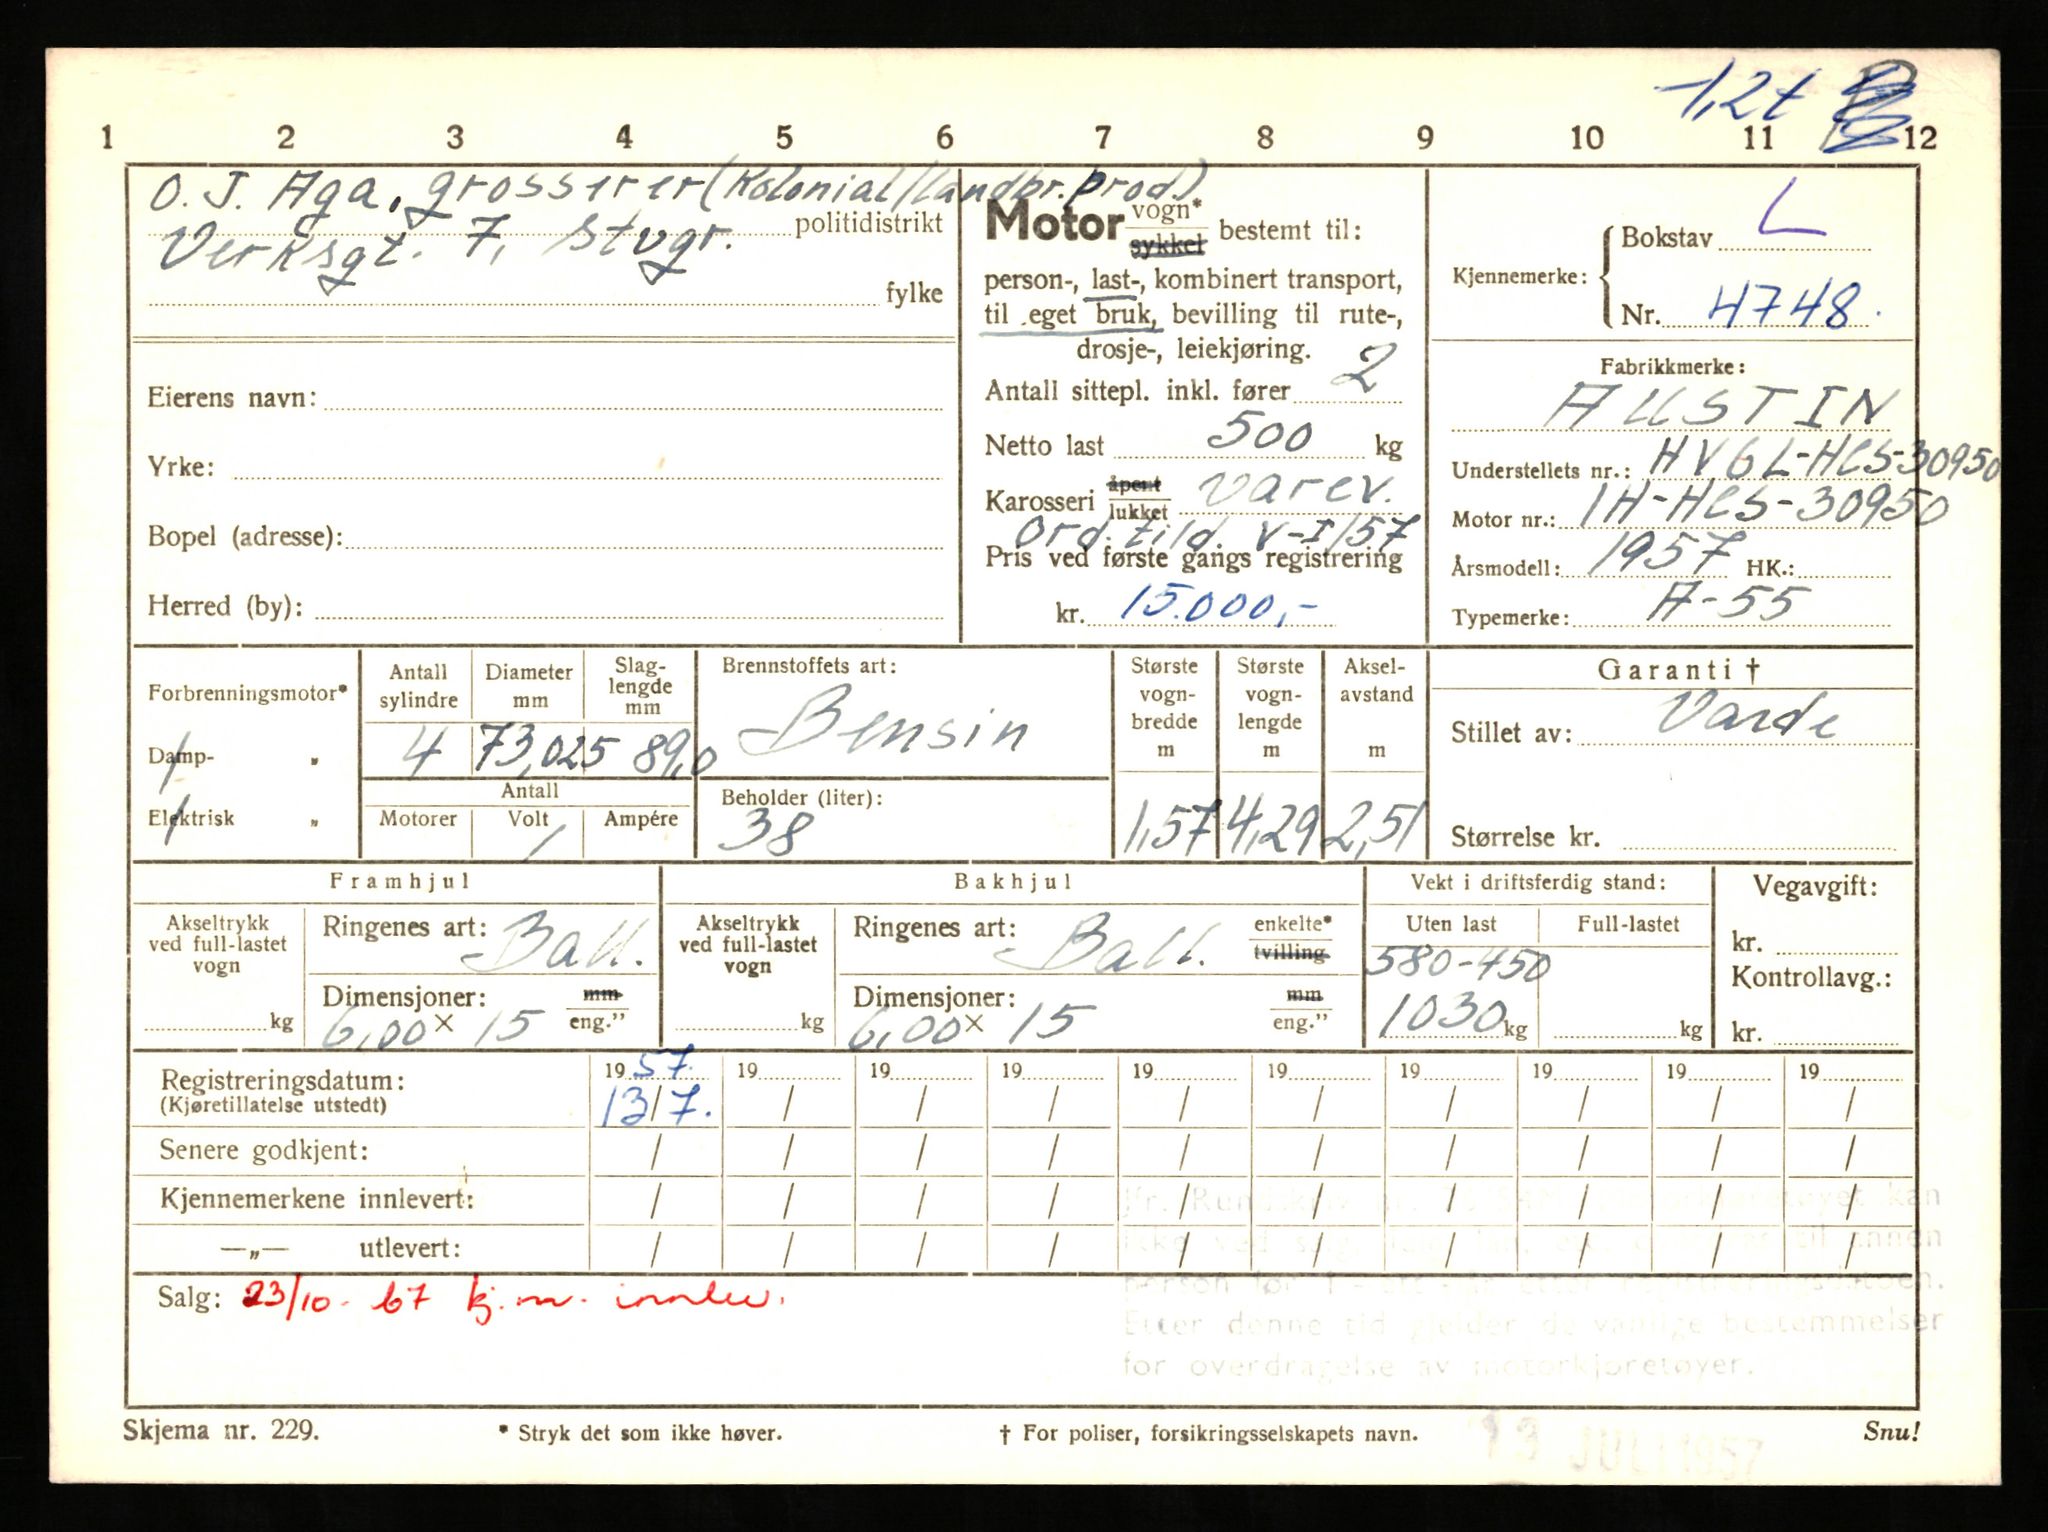 1,2t
1 2 3 4 5 6 7 8 9 10 11 12
O. J. Aga, grosserer (Kolonial/landbr.prod.)
politidistrikt
Verksgt. 7, Stvgr.
fylke
Eierens navn:
Yrke:
Bopel (adresse):
Herred (by):
Motor vogn* sykkel bestemt til:
person-, last-, kombinert transport,
til eget bruk, bevilling til rute-,
drosje-, leiekjøring.
Antall sittepl. inkl. fører 2
Netto last 500 kg
Karosseri åpent lukket varev.
Ord. tild. V-I/57
Pris ved første gangs registrering
kr. 15.000,-
Kjennemerke: Bokstav L
Nr. 4748.
Fabrikkmerke:
AUSTIN
Understellets nr.: HV6L-HCS-30950
Motor nr.: 1H-HCS-30950
Årsmodell: 1957 HK.:
Typemerke: A-55
Forbrenningsmotor*
Damp- „
Elektrisk „
Antall sylindre 4
Diameter mm 73,025
Slag-lengde mm 89,0
Antall
Motorer Volt Ampére
Brennstoffets art:
Bensin
Beholder (liter):
38
Største vogn-bredde m 1,57
Største vogn-lengde m 4,29
Aksel-avstand m 2,51
Garanti †
Stillet av: Varde
Størrelse kr.
Framhjul
Akseltrykk ved full-lastet vogn
kg
Ringenes art: Ball.
Dimensjoner: mm eng."
6,00 × 15
Bakhjul
Akseltrykk ved full-lastet vogn
kg
Ringenes art: Ball. enkelte* tvilling
Dimensjoner: mm eng."
6,00 × 15
Vekt i driftsferdig stand:
Uten last Full-lastet
580-450
1030 kg kg
Vegavgift:
kr.
Kontrollavg.:
kr.
Registreringsdatum: 19 57. 19 19 19 19 19 19 19 19 19
(Kjøretillatelse utstedt) 13/7. / / / / / / / / /
Senere godkjent: / / / / / / / / / /
Kjennemerkene innlevert: / / / / / / / / / /
—„— utlevert: / / / / / / / / / /
Jfr. Rundskriv nr. kan
ikke ved salg, til annen
person før etter registreringsdatoen.
Etter denne tid gjelder de vanlige bestemmelser
for overdragelse av motorkjøretøyer.
Salg: 23/10-67 kj.m. innlev.
Skjema nr. 229.
* Stryk det som ikke høver.
† For poliser, forsikringsselskapets navn.
Snu!
13 JULI 1957